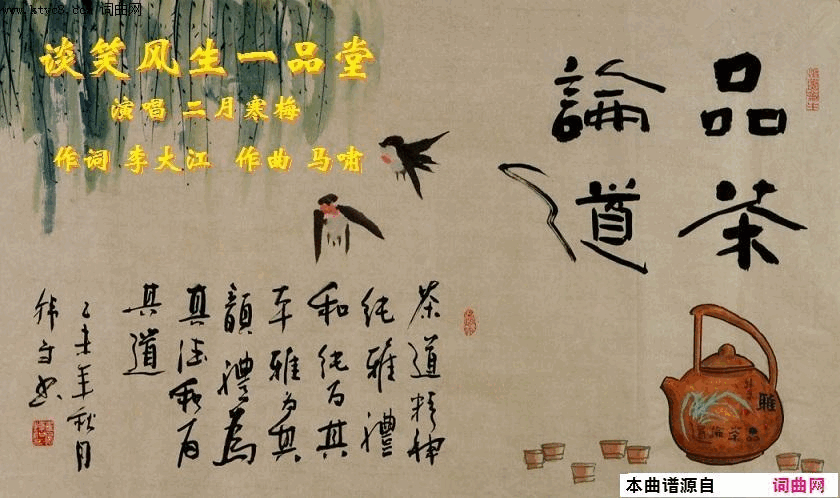 词曲网
谈笑风生一品堂
演唱 二月寒梅
作词 李大江 作曲 马啸
品茶
論道
茶道精神
纯雅禮
和纯为其
本雅为其
韻禮為
其法和为
其道
乙未年秋月
雅
品茶論道
本曲谱源自 词曲网